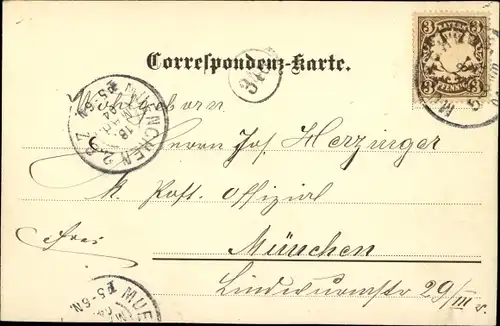 3 BAYERN 3
PFENNIG
Correspondenz-Karte.
MÜNCHEN
18
MAI
5-6N
B.Z.
Wohlgeboren
Herrn Jos. Herzinger
K. Post. Offizial
frei
München
Lindwurmstr 29/III r.
MUE
5-6N.